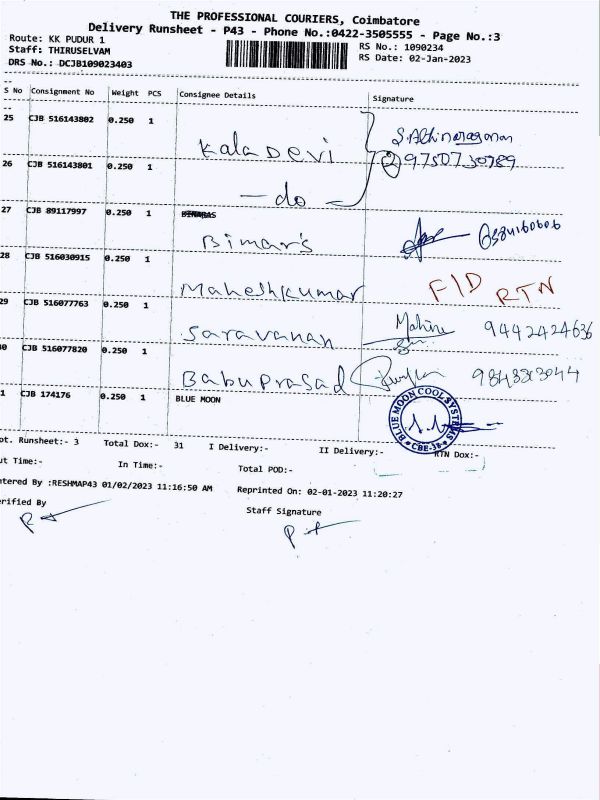 THE PROFESSIONAL COURIERS, Coimbatore
Delivery Runsheet - P43 - Phone No.:0422-3505555 - Page No.:3
Route: KK PUDUR 1
RS No.: 1090234
Staff: THIRUSELVAM
RS Date: 02-Jan-2023
DRS No.: DCJB109023403
S No Consignment No Weight PCS Consignee Details Signature
25 CJB 516143802 0.250 1 Kala Devi
9750730789
26 CJB 516143801 0.250 1 - do -
27 CJB 89117997 0.250 1 Bimar's
28 CJB 516030915 0.250 1 Maheshkumar FID RTN
29 CJB 516077763 0.250 1 Saravanan 9442424636
0 CJB 516077820 0.250 1 Babu Prasad
1 CJB 174176 0.250 1 BLUE MOON
BLUE MOON COOL SYSTEMS
CBE-38
ot. Runsheet:- 3 Total Dox:- 31 I Delivery:- II Delivery:- RTN Dox:-
ut Time:- In Time:- Total POD:-
ntered By :RESHMAP43 01/02/2023 11:16:50 AM Reprinted On: 02-01-2023 11:20:27
erified By Staff Signature